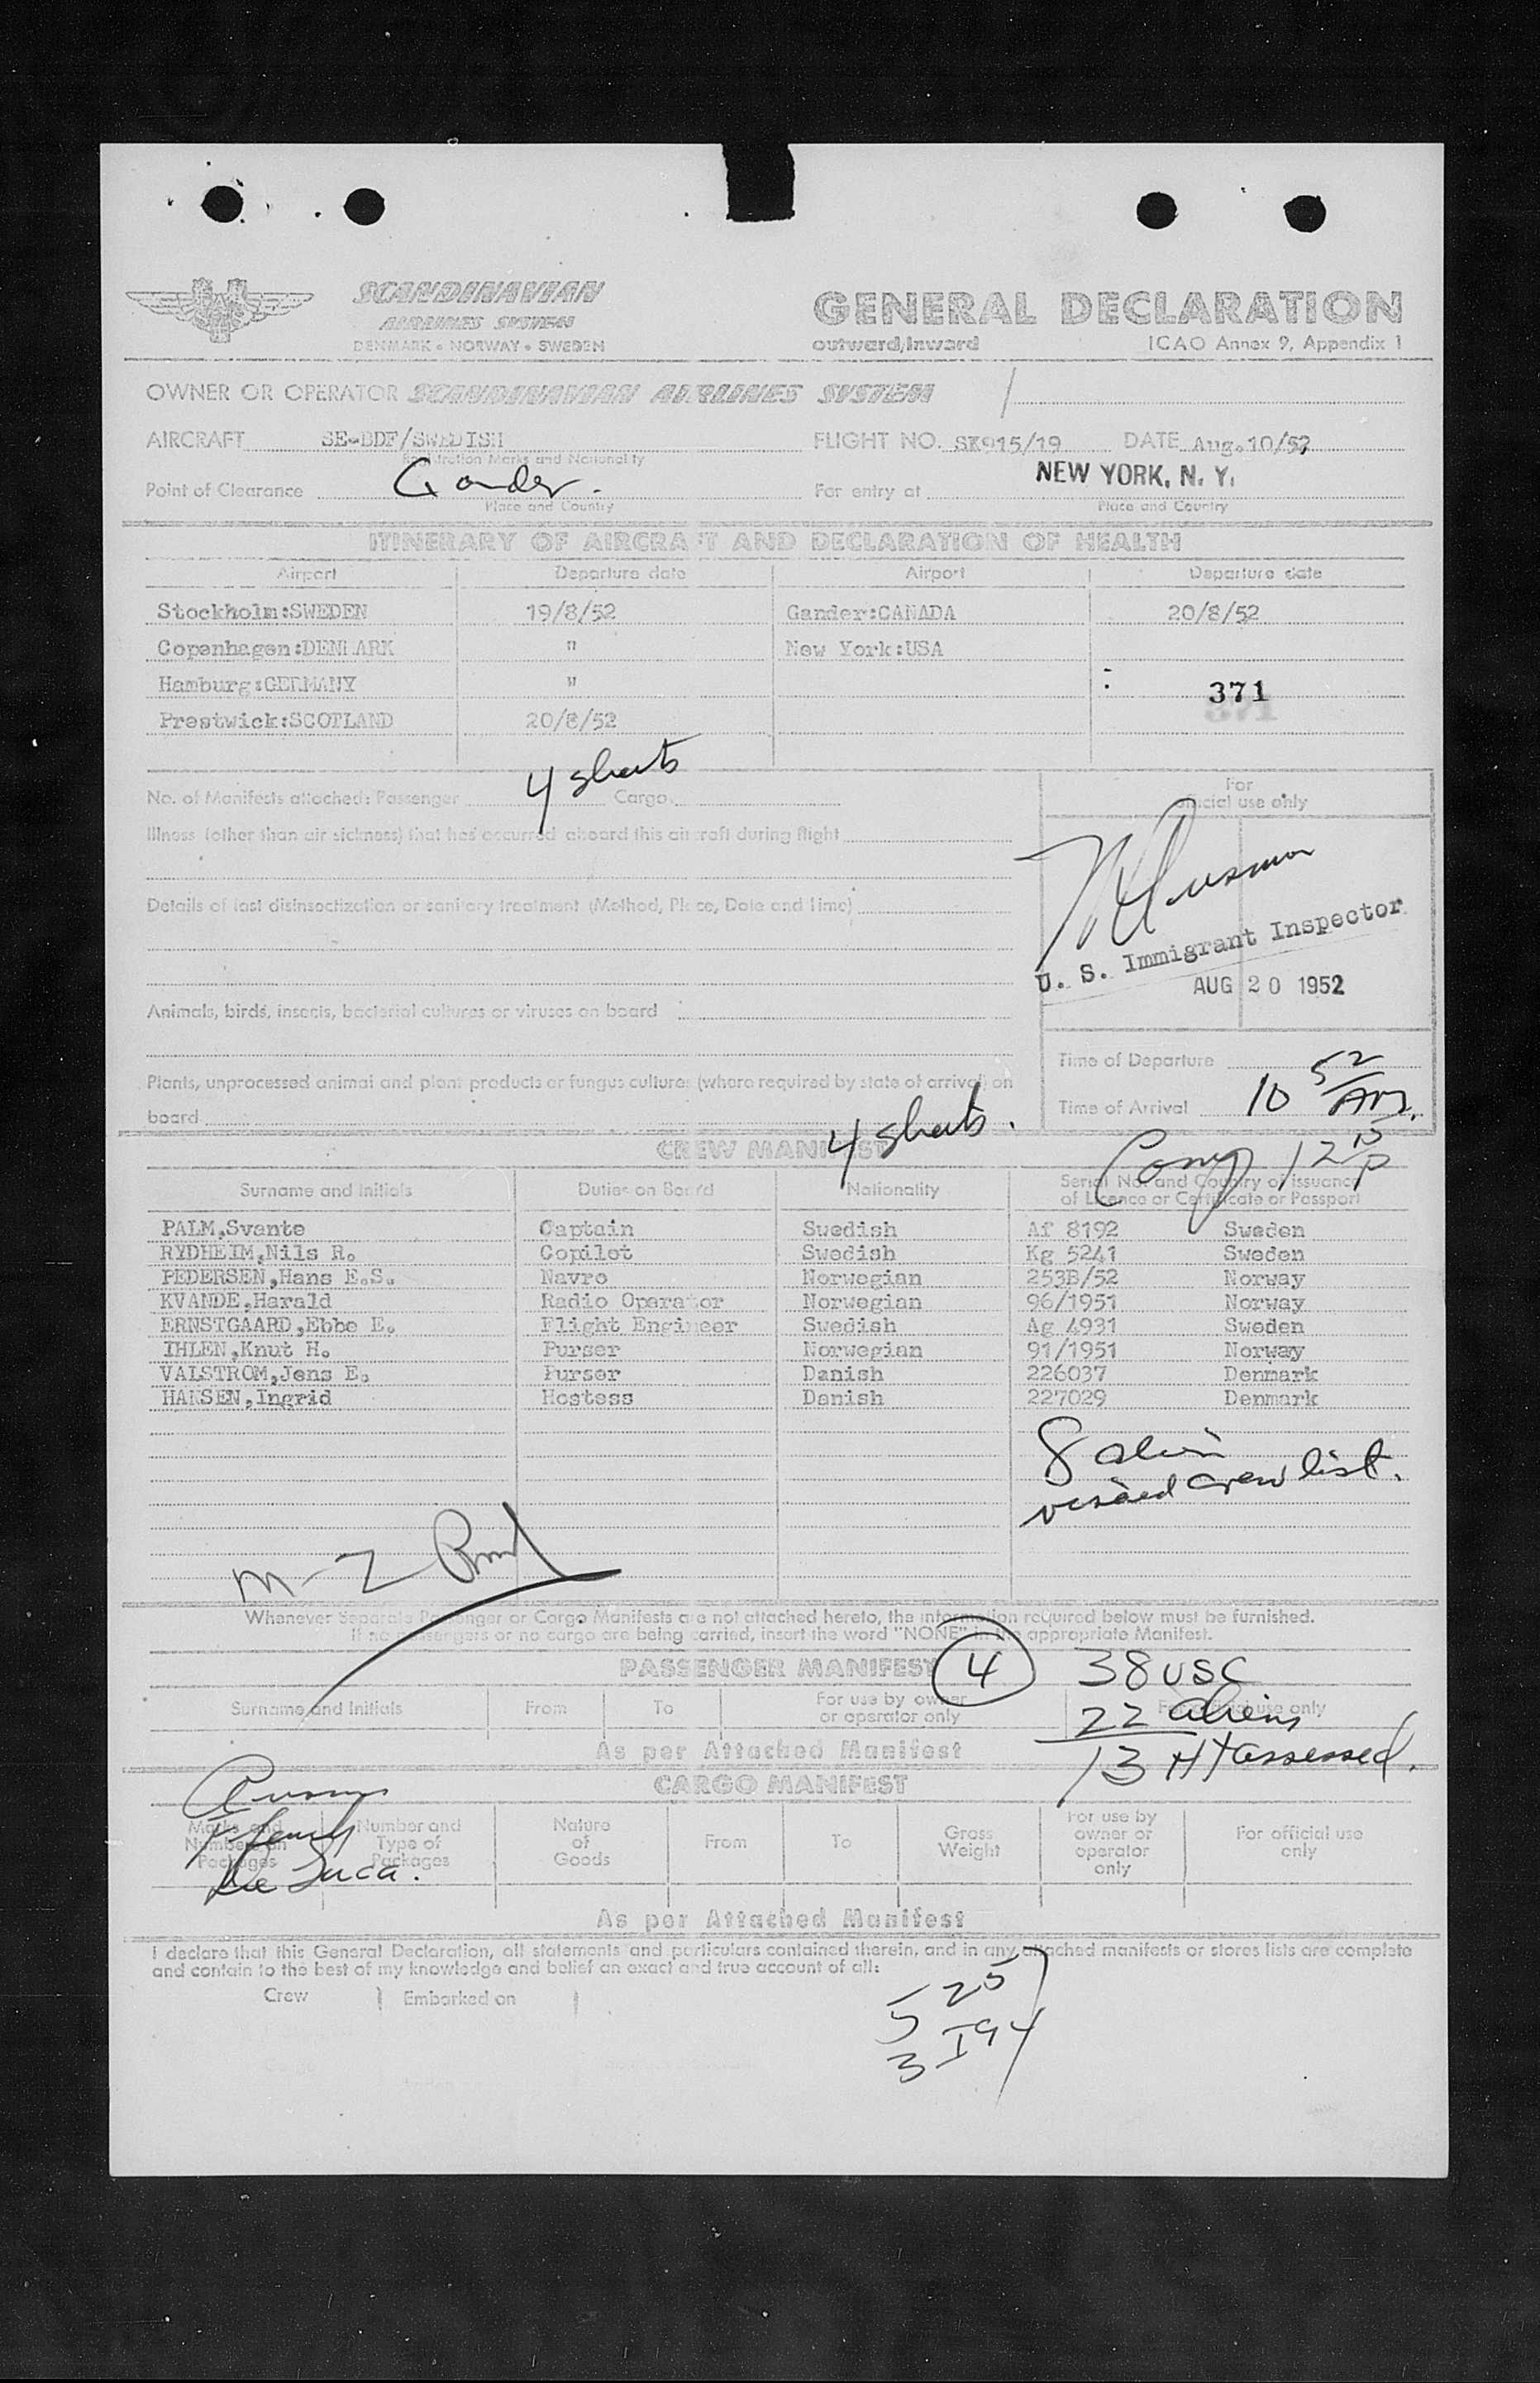 SCANDINAVIAN
AIRLINES SYSTEM
DENMARK • NORWAY • SWEDEN
GENERAL DECLARATION
outward/inward ICAO Annex 9, Appendix 1
OWNER OR OPERATOR SCANDINAVIAN AIRLINES SYSTEM
AIRCRAFT SE-BDF/SWEDISH FLIGHT NO. SK915/19 DATE Aug.10/52
Registration Marks and Nationality
Point of Clearance Gander. For entry at NEW YORK, N. Y.
Place and Country Place and Country
ITINERARY OF AIRCRAFT AND DECLARATION OF HEALTH
Airport Departure date Airport Departure date
Stockholm:SWEDEN 19/8/52 Gander:CANADA 20/8/52
Copenhagen:DENMARK " New York:USA
Hamburg:GERMANY " 371
Prestwick:SCOTLAND 20/8/52
4 sheets
No. of Manifests attached: Passenger Cargo
For
official use only
Illness (other than air sickness) that has occurred aboard this aircraft during flight
Details of last disinsectization or sanitary treatment (Method, Place, Date and Time)
U. S. Immigrant Inspector
AUG 20 1952
Animals, birds, insects, bacterial cultures or viruses on board
Time of Departure
Plants, unprocessed animal and plant products or fungus cultures (where required by state of arrival) on
board
Time of Arrival 10 52 AM.
CREW MANIFEST 4 sheets. Comp 12 15 P
Surname and Initials Duties on Board Nationality Serial No. and Country of issuance
of Licence or Certificate or Passport
PALM,Svante Captain Swedish Af 8192 Sweden
RYDHEIM,Nils R. Copilot Swedish Kg 5241 Sweden
PEDERSEN,Hans E.S. Navro Norwegian 253B/52 Norway
KVANDE,Harald Radio Operator Norwegian 96/1951 Norway
ERNSTGAARD,Ebbe E. Flight Engineer Swedish Ag 4931 Sweden
IHLEN,Knut H. Purser Norwegian 91/1951 Norway
VALSTROM,Jens E. Purser Danish 226037 Denmark
HANSEN,Ingrid Hostess Danish 227029 Denmark
8 alien
visaed crew list.
M-Z
Whenever Separate Passenger or Cargo Manifests are not attached hereto, the information required below must be furnished.
If no passengers or no cargo are being carried, insert the word "NONE" in the appropriate Manifest.
PASSENGER MANIFEST 4 38 USC
Surname and Initials From To For use by owner
or operator only For official use only
22 aliens
As per Attached Manifest 13 HT assessed.
CARGO MANIFEST
Marks and
Numbers on
Packages Number and
Type of
Packages Nature
of
Goods From To Gross
Weight For use by
owner or
operator
only For official use
only
De Luca.
As per Attached Manifest
I declare that this General Declaration, all statements and particulars contained therein, and in any attached manifests or stores lists are complete
and contain to the best of my knowledge and belief an exact and true account of all:
Crew Embarked on
5 257
3 I94